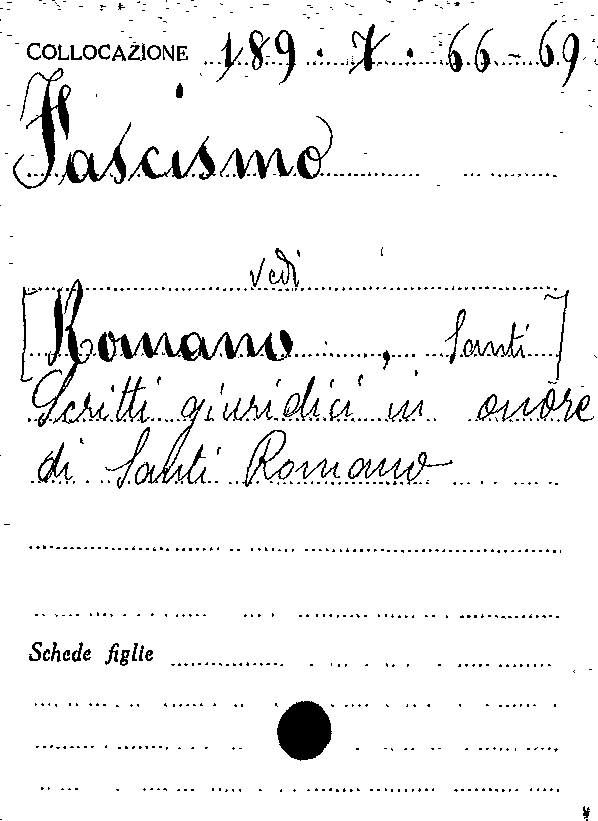 COLLOCAZIONE 189.7.66-69
Fascismo
vedi
[Romano, Santi]
Scritti giuridici in onore
di Santi Romano
Schede figlie